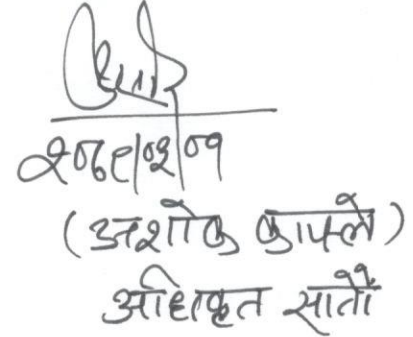 २०८१।०३।०१
(अशोक काफ्ले)
अधिकृत सातौं